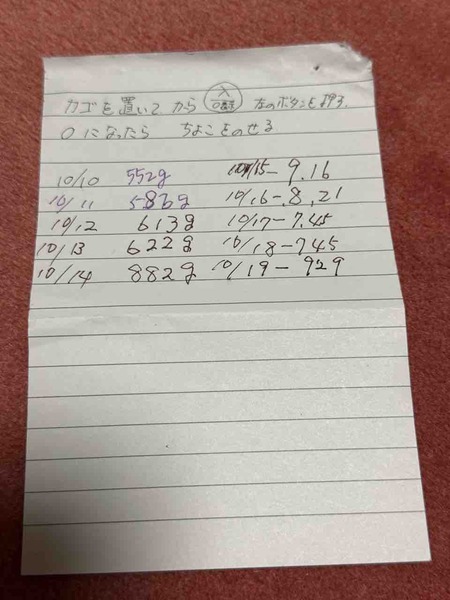 カゴを置いてから 入/0表示 左のボタンを押す.
0になったら ちよこをのせる
10/10 552g 10/15-9.16
10/11 586g 10/16-.8,21
10/12 613g 10/17-7.45
10/13 622g 10/18-745
10/14 882g 10/19-929